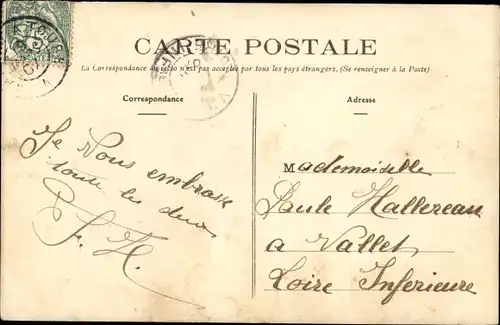 CARTE POSTALE
La Correspondance au recto n'est pas acceptée par tous les pays étrangers. (Se renseigner à la Poste)
Correspondance
Adresse
Je Vous embrasse
toute les deux
F. H.
Mademoiselle
Paule Hallereau
a Vallet
Loire Inferieure